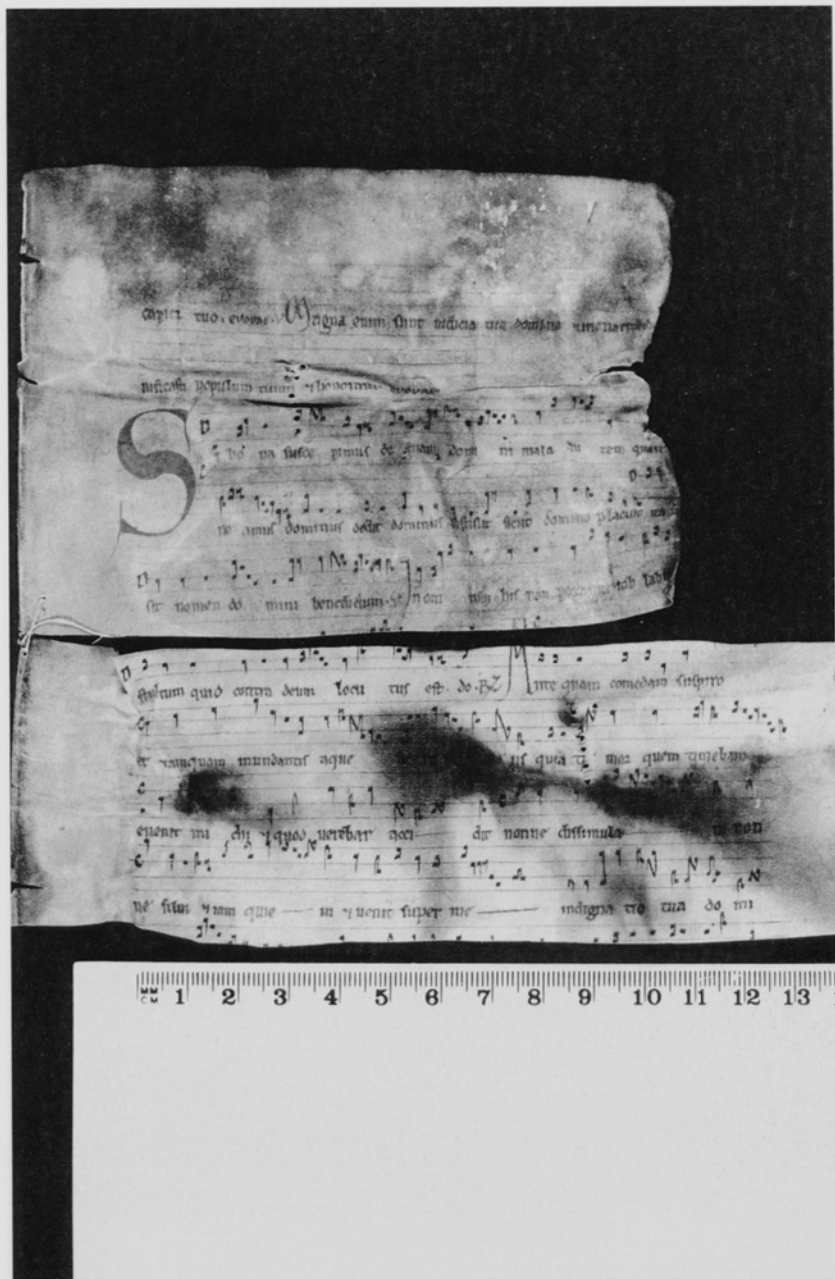 capiti tuo. evovae. Magna enim sunt iudicia tua domine
nificasti populum tuum ⁊ honorasti evovae
S bo na susce pimus de manu dom ni mala au tem quare
ne amus dominus dedit dominus abstulit sicut domino placuit ita
sit nomen do mini benedictum. ℣ nom his non peccavit iob labi
stultum quid contra deum locu tus est. do. ℟ Ante quam comedam suspiro
et tamquam inundantis aque us quia ti mor quem timebam
evenit mi chi ⁊ quod verebar acci dit nonne dissimula vi non
ne silui ⁊ iam quie vi ⁊ venit super me indigna tio tua do mi
CM 1 2 3 4 5 6 7 8 9 10 11 12 13